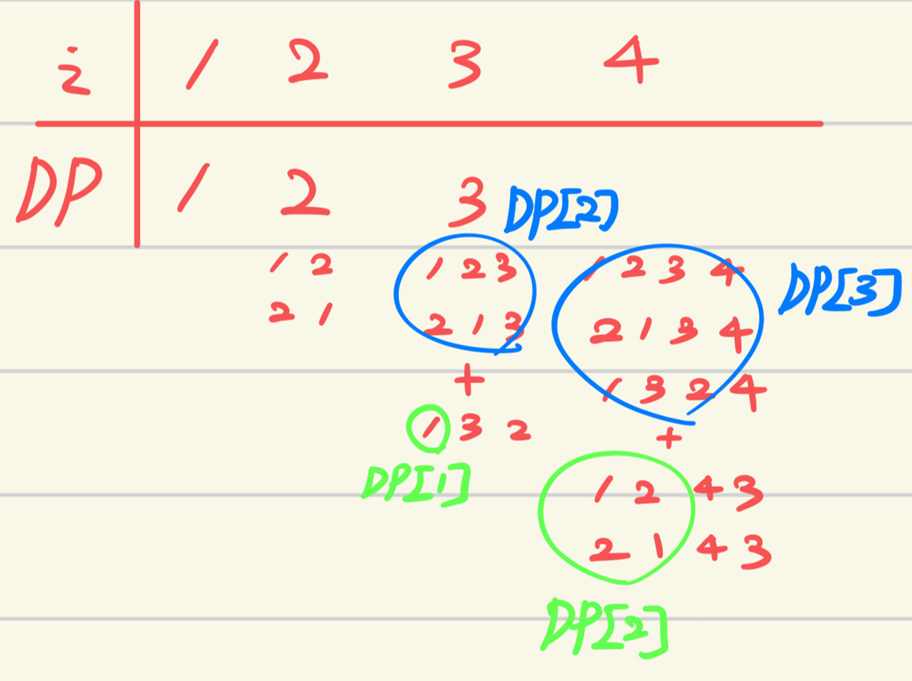 i 1 2 3 4
DP 1 2 3 DP[2]
1 2 1 2 3 1 2 3 4 DP[3]
2 1 2 1 3 2 1 3 4
+ 1 3 2 4
1 3 2 +
DP[1] 1 2 4 3
2 1 4 3
DP[2]